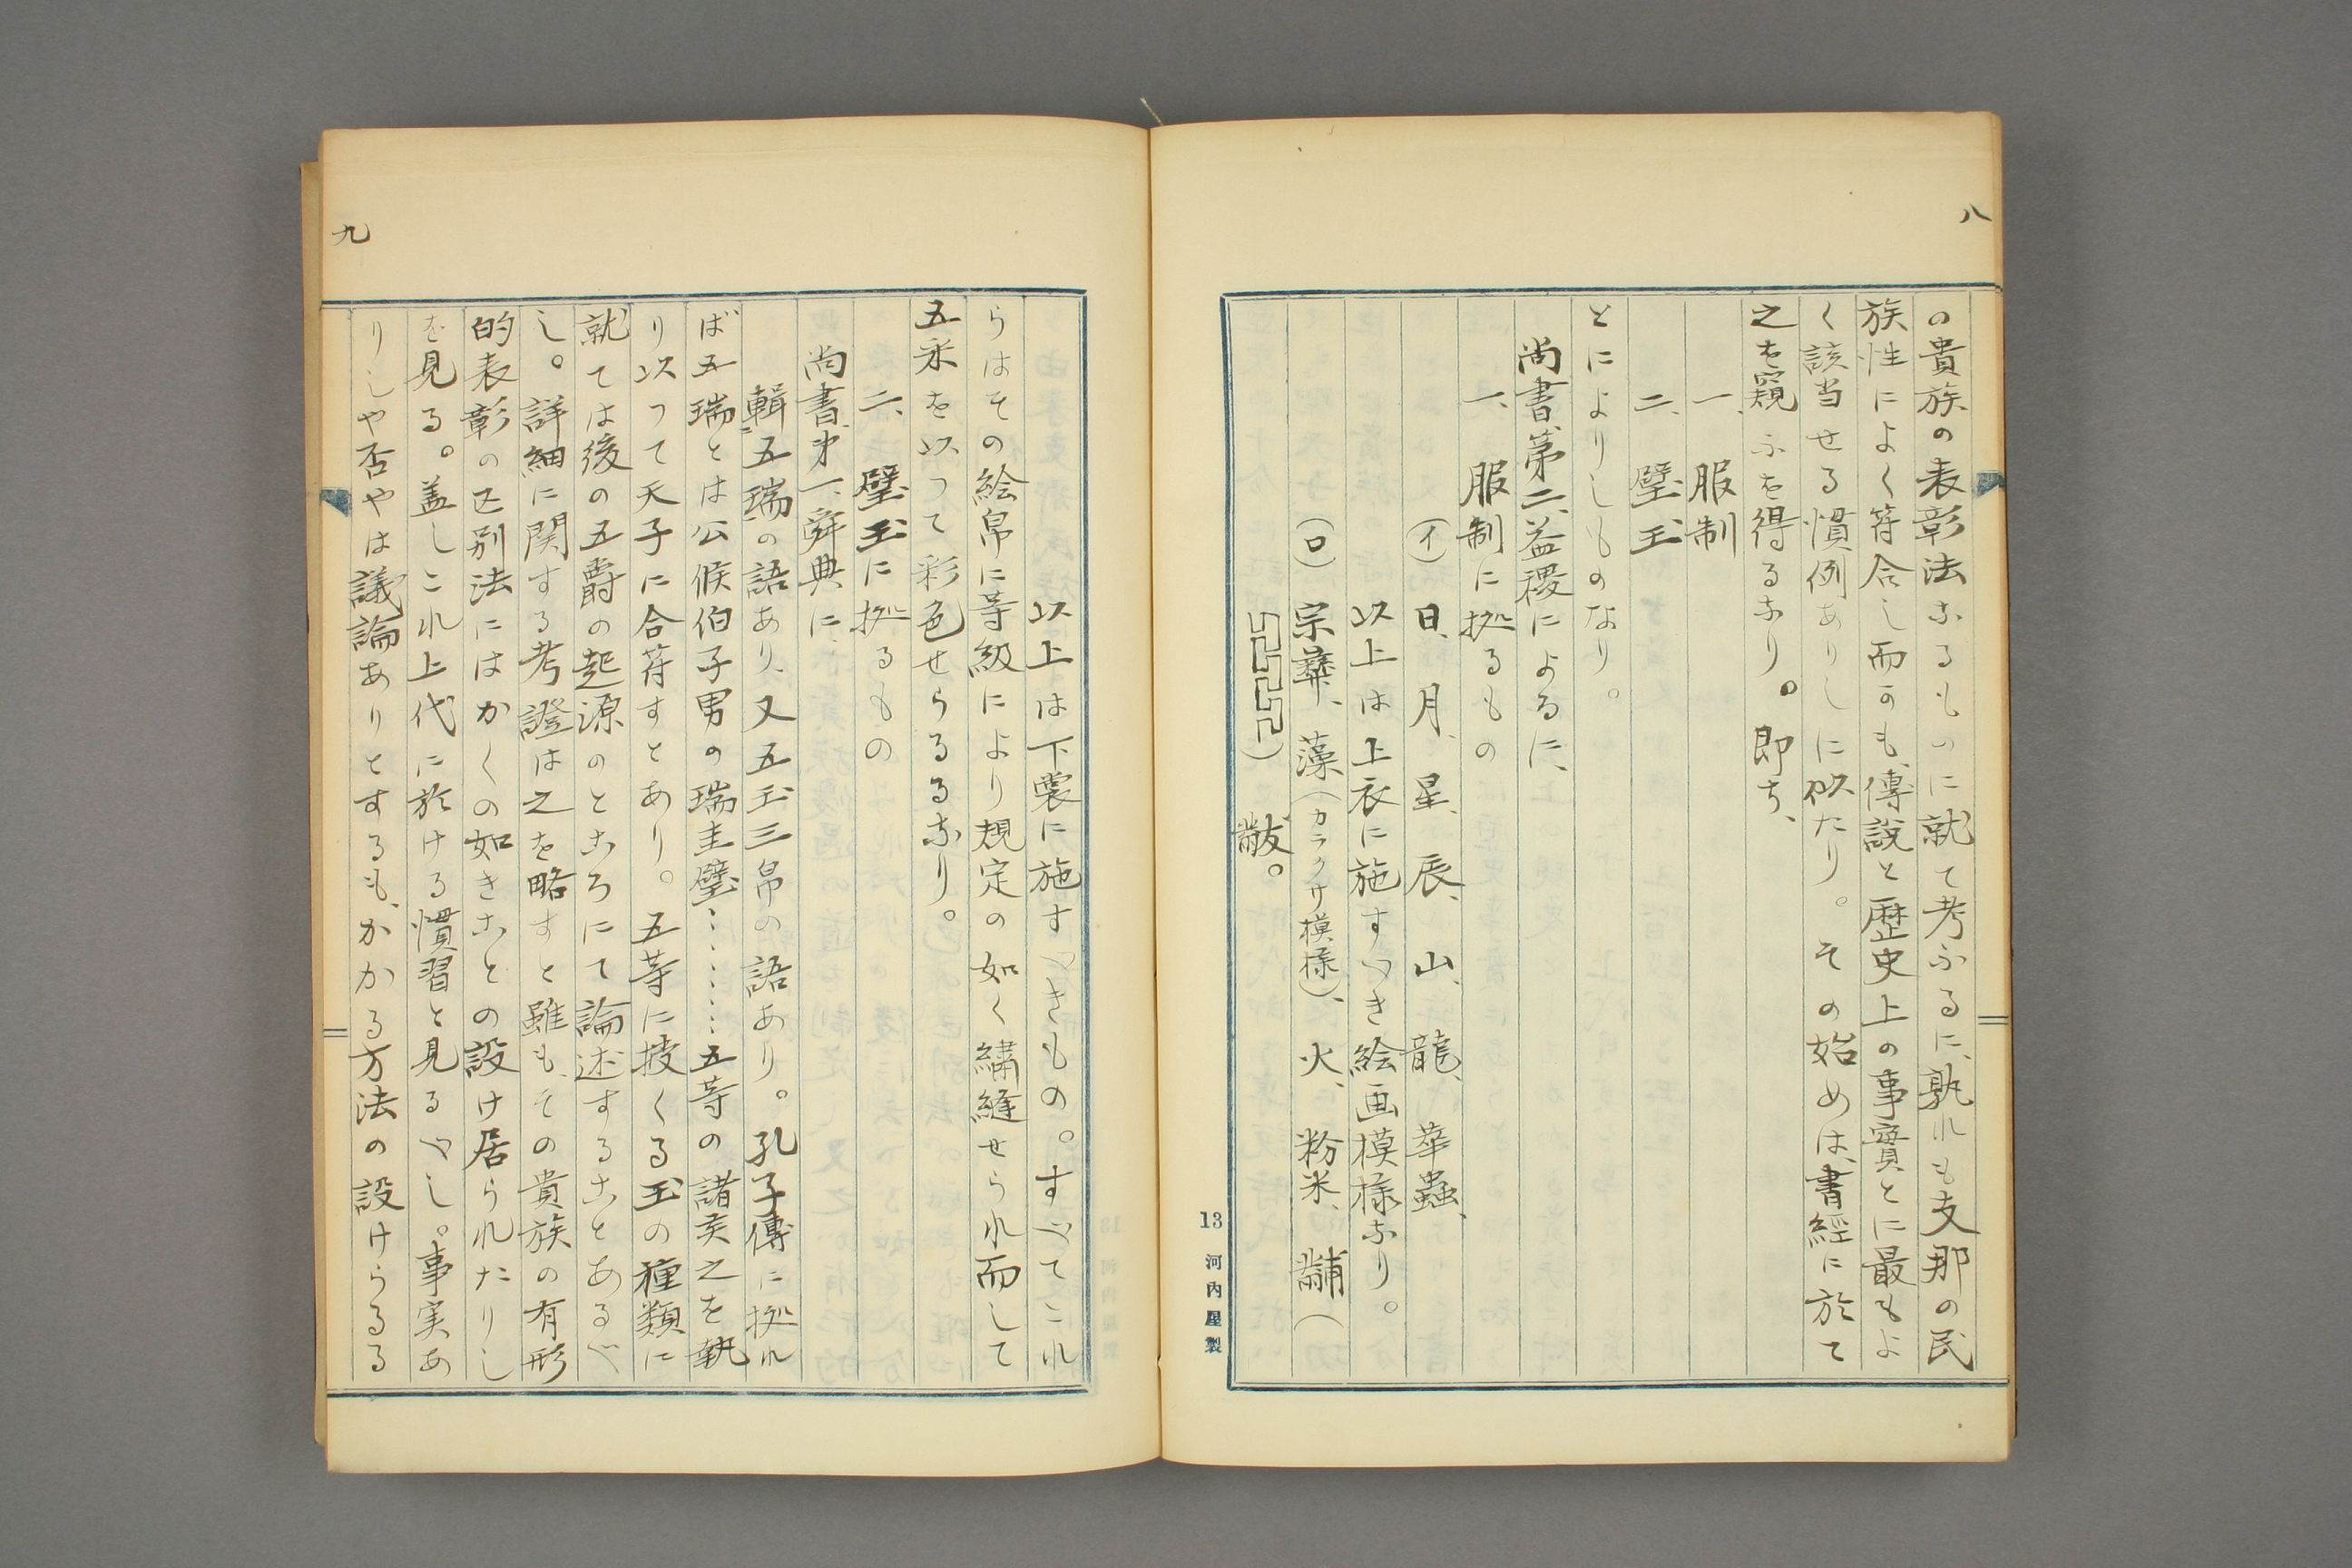 八
の貴族の表彰法なるものに就て考ふるに、孰れも支那の民
族性によく符合し而かも、傳説と歴史上の事實とに最もよ
く該当せる慣例ありしに似たり。その始めは、書經に於て
之を窺ふを得るなり。即ち、
一、服制
二、璧玉
とによりしものなり。
尚書、第二、益稷によるに、
一、服制に拠るもの
(イ) 日、月、星、辰、山、龍、華蟲、
以上は上衣に施すべき絵画模様なり。
(ロ) 宗彝、藻(カラクサ模様)、火、粉米、黼(
) 黻。
13 河内屋製
九
以上は下裳に施すべきもの。すべてこれ
らはその絵帛に等級により規定の如く繍縫せられ而して
五采を以つて彩色せらるるなり。
二、璧玉に拠るもの
尚書、第一、舜典に、
輯五瑞の語あり、又五玉三帛の語あり。孔子傳に拠れ
ば五瑞とは公候伯子男の瑞圭璧……五等の諸侯之を執
り以つて天子に合符すとあり。五等に技くる玉の種類に
就ては後の五爵の起源のところにて論述することあるべ
し。詳細に関する考證は之を略すと雖も、その貴族の有形
的表彰の区別法にはかくの如きことの設け居られたりし
を見る。蓋しこれ上代に於ける慣習と見るべし。事実あ
りしや否やは議論ありとするも、かかる方法の設けらるる